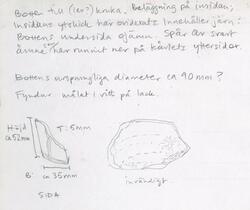 Botten till (ler?) kruka. Beläggning på insidan;
Insidans ytskick har oxiderats. Innehåller järn?
Bottens undersida ojämn. Spår av svart
ämne har runnit ner på kärlets yttersida.
Bottens ursprungliga diameter ca 90mm?
Fyndnr målat i vitt på lack.
Höjd
ca 52mm
T: 5mm
B: ca 35mm
SIDA
invändigt